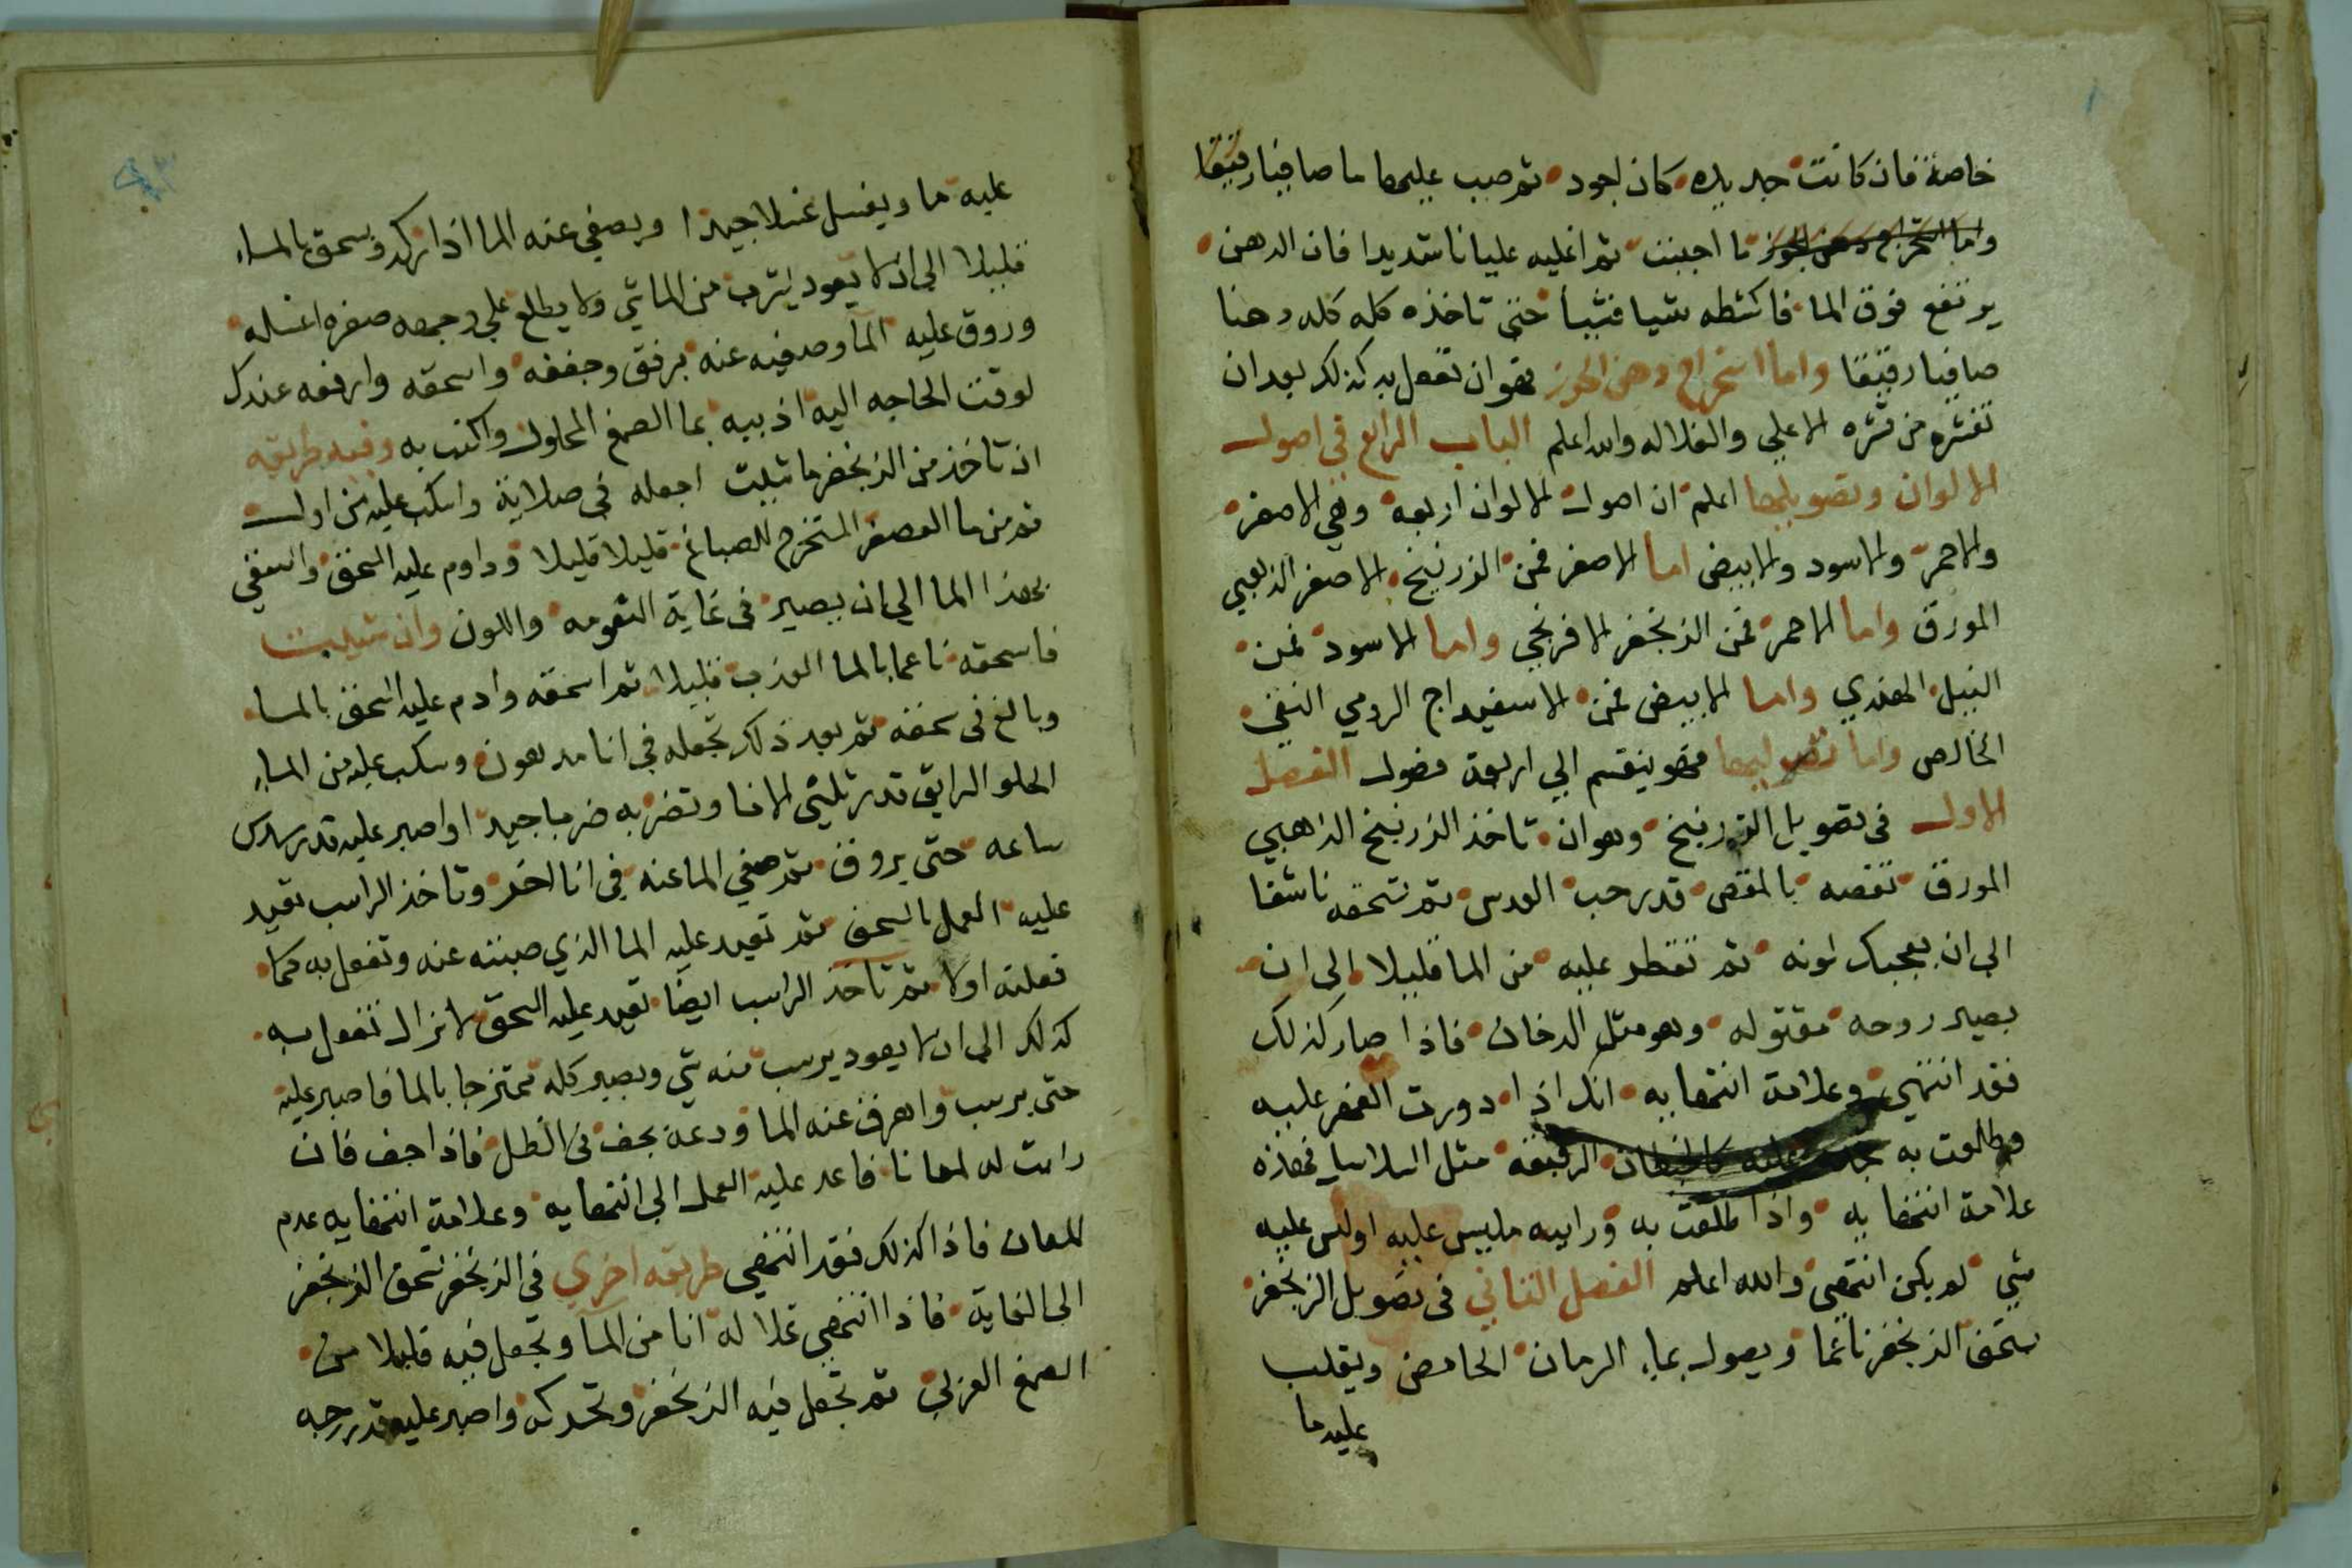 خاصة فان كانت جديده كان اجود ثم صب عليها ما صافيا رقيقا
واما استخراج دهن الجوز ما اجبنت ثم اغليه عليانا شديدا فان الدهن
يرتفع فوق الما فاكشطه شيا فشيأ حتى تاخذه كله كله دهنا
صافيا رقيقا واما استخراج دهن الجوز فهو ان تفعل به كذلك بعد ان
تقشره من قشره الاعلي والغلاله والله اعلم الباب الرابع في اصول
الالوان وتصويلها اعلم ان اصول الالوان اربعة وهي الاصفر
والاحمر والاسود والابيض اما الاصفر فمن الزرنيخ الاصفر الذهبي
المورق واما الاحمر فمن الزنجفر الافرنجي واما الاسود فمن
النيل الهندي واما الابيض فمن الاسفيداج الرومي النقي
الخالص واما تصويلها فهو ينقسم الي اربعة فصول الفصل
الاول في تصويل الزرنيخ وهو ان تاخذ الزرنيخ الذهبي
المورق تقصه بالمقص قدر حب العدس ثم تسحقه ناشفا
الي ان يعجبك لونه ثم تقطر عليه من الما قليلا الي ان
يصير روحه مقتوله وهو مثل الدخان فاذا صار كذلك
فقد انتهي وعلامة انتهايه انك اذا دورت الفهر عليه
وطلعت به عليه كالخيطان الرقيقه مثل فهذه
علامة انتهايه واذا طلعت به ورايه عليه
شي لم يكن انتهي والله اعلم الفصل الثاني في تصويل الزنجفر
ستحق الزنجفر ناعما ويصول بماء الرمان الحامض ويقلب
عليه ما
عليه ما ويغسل غسلا جيدا ويصفي عنه الما اذا ركد ويسحق بالماء
قليلا الي ان لا يعود يشرب من الما شي ولا يطلع علي وجهه صفره اغسله
وروق عليه الما وصفيه عنه برفق وجففه واسحقه وارفعه عندك
لوقت الحاجه اليه اذيبه بما الصمغ المحلول واكتب به وفيه طريقه
ان تاخذ من الزنجفر ما شيت اجعله في صلاية واسكب عليه من اول
ثم من ما العصفر المستخرج للصباغ قليلا قليلا وداوم عليه السحق
بهذا الما الي ان يصير في غاية النعومه واللون وان شيت
فاسحقه ناعما بالما العذب قليلا ثم اسحقه وادم عليه السحق بالما
وبالغ في سحقه ثم بعد ذلك تجعله في انا مدهون وسكب عليه من الماء
الحلو الرايق قدر ثلثي الانا وتضربه ضربا جيدا واصبر عليه قدر سدس
ساعه حتى يروق ثم صفي الما عنه في انا اخر وتاخذ الراسب تعيد
عليه العمل بالسحق ثم تعيد عليه الما الذي صبته عنه وتفعل به كما
فعلته اولا ثم تاخذ الراسب ايضا تعيد عليه السحق لا تزال تفعل به
كذلك الي ان لا يعود يرسب منه شي ويصير كله ممتزجا بالما فاصبر عليه
حتى يرسب واهرق عنه الما ودعه يجف في الظل فاذا جف فان
رايت له لمعانا فاعد عليه العمل الي انتهايه وعلامة انتهايه عدم
اللمعان فاذا كذلك فقد انتهي طريقه اخري في الزنجفر تسحق الزنجفر
الي الغاية فاذا انتهي تملا له انا من الما وتجعل فيه قليلا من
الصمغ العربي ثم تجعل فيه الزنجفر وتحركه واصبر عليه قدر درجه